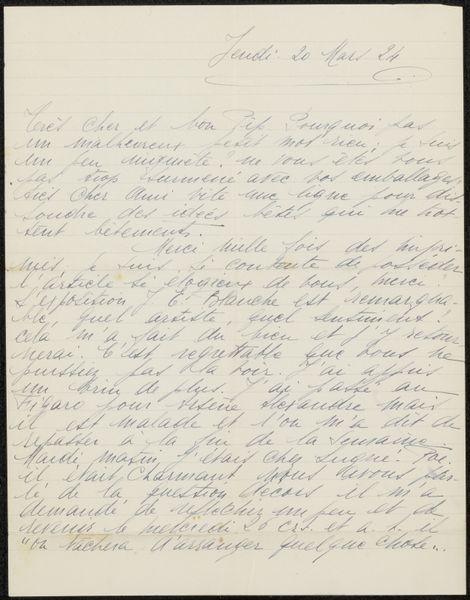 Jeudi 20 Mars 24
Très cher et bon Pip. Pourquoi pas
un malheureux petit mot rien, je suis
un peu inquiète! ne vous êtes vous
pas trop surmené avec vos emballages
très cher Ami vite une ligne pour dis
soudre des idées bêtes qui me trot
tent bêtement.
Merci mille fois des impri
més, je suis si contente de posséder
l'article si élogieux de vous, merci!
L'exposition J. E. Blanche est remarqua
ble, quel artiste, quel sentiment!
cela m'a fait du bien et j'y retour
nerai. C'est regrettable que vous ne
puissiez pas la voir. J'ai appris
un brin de plus. J'ai passé au
Figaro pour Arsène Alexandre mais
il est malade et l'on m'a dit de
repasser à la fin de la semaine.
Mardi matin j'étais chez Lugné-Poe.
il était charmant, nous avons par
lé de la question décors il m'a
demandé de réfléchir un peu et de
revenir le mercredi 26 crt. et a. s. il
"on tâchera d'arranger quelque chose...